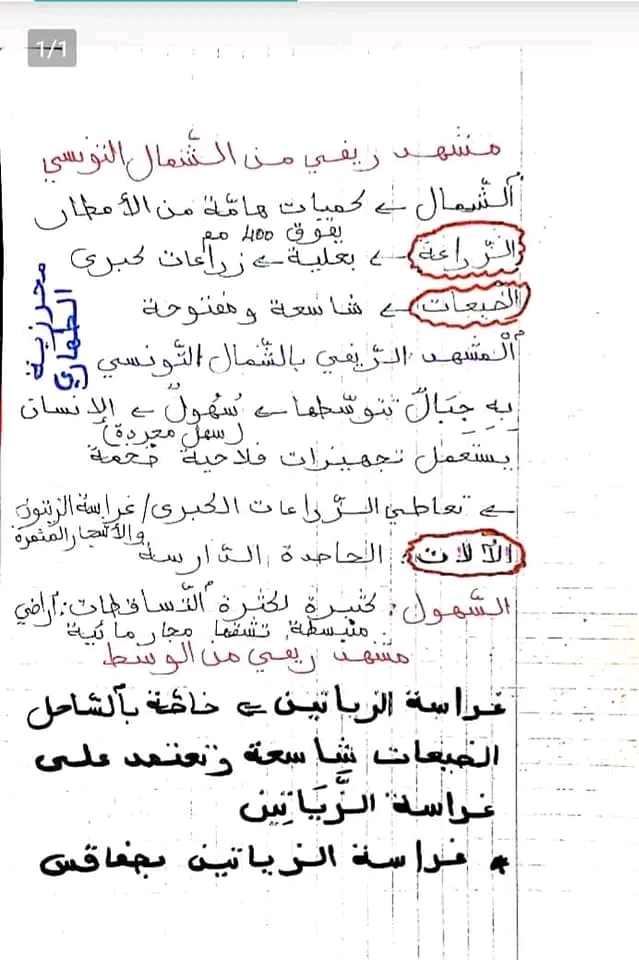 1/1
مشهد ريفي من الشمال التونسي
الشّمال ← كميات هامّة من الأمطار
يفوق 400 مم
الزّراعة ← بعلية ← زراعات كبرى
الضيعات ← شاسعة ومفتوحة
المشهد الرّيفي بالشّمال التّونسي
بِهِ جِبَالٌ تتوسّطها ← سُهُولٌ ← الإنسان
(سهل مجردة)
يستعمل تجهيزات فلاحية ضخمة
← تعاطي الزّراعات الكبرى / غراسة الزيتون
والأشجار المثمرة
الآلات: الحاصدة الدّارسة
السّهول: كثيرة لكثرة التّساقطات: أراضي
منبسطة، تشقها مجار مائية
مشهد ريفي من الوسط
غراسة الزياتين ← خاصّة بالسّاحل
الضيعات شاسعة وتعتمد على
غراسة الزَّيَاتِين
* غراسة الزياتين بصفاقس
محرزية
الطهاري